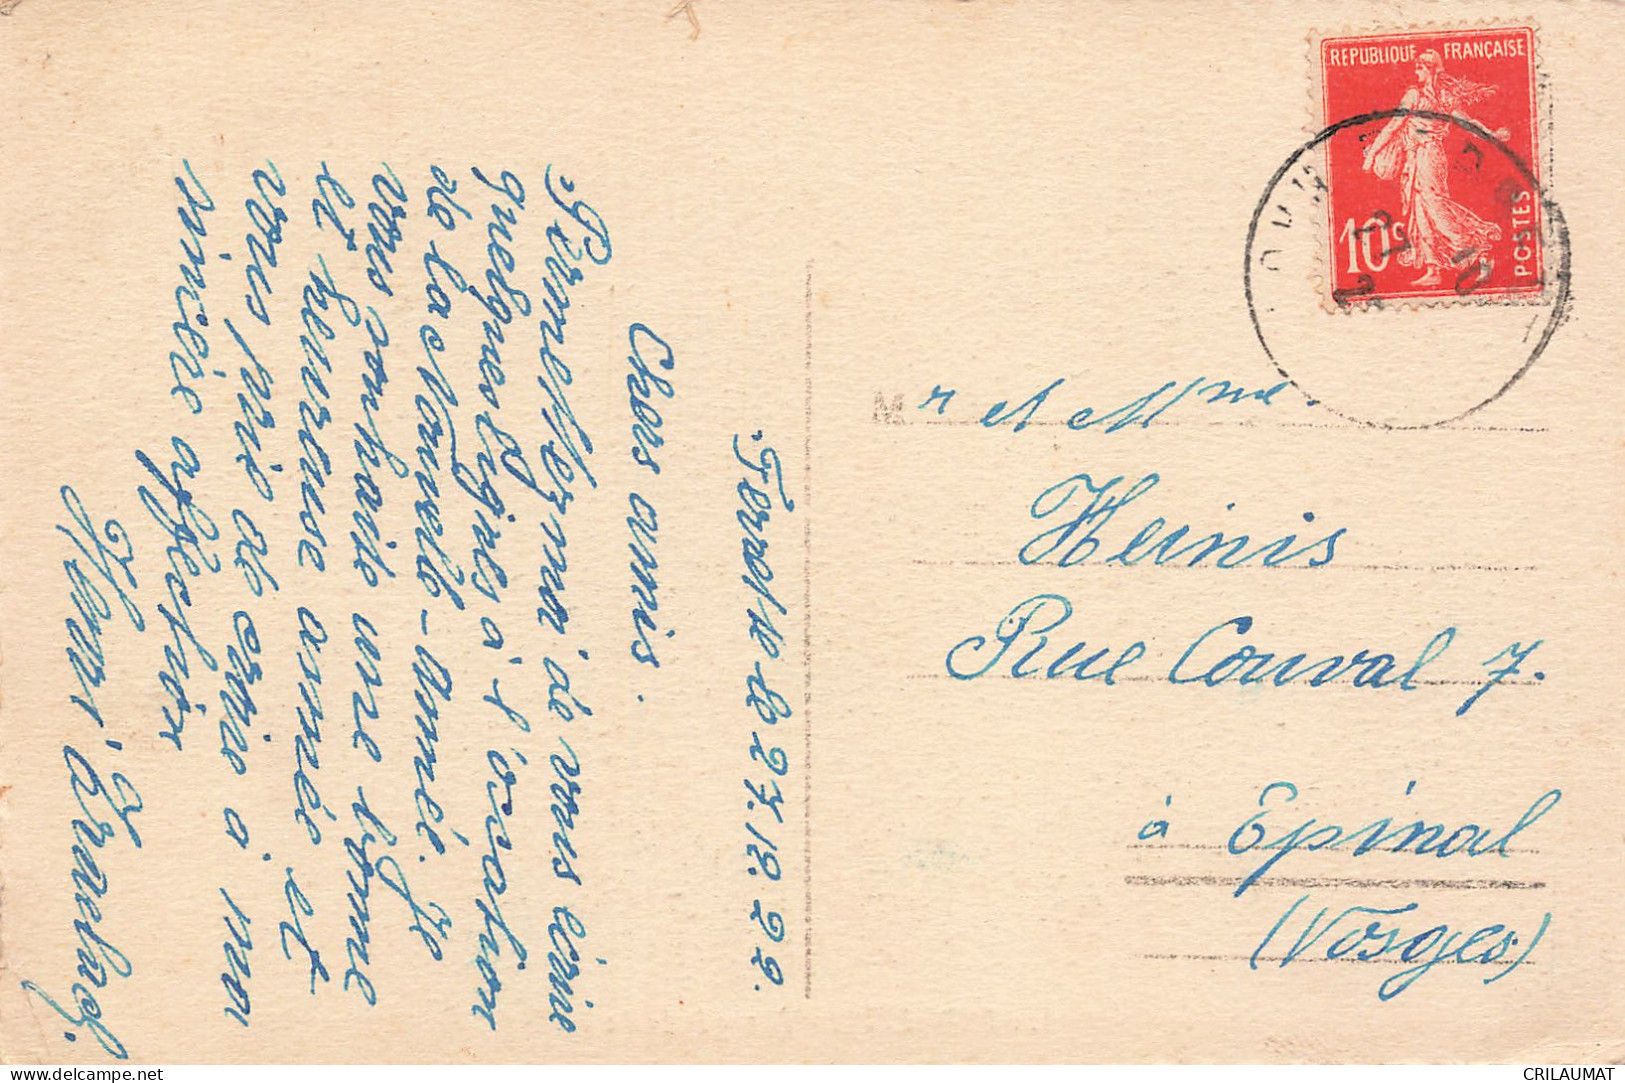 REPUBLIQUE FRANÇAISE
10c
POSTES
Ferrette le 27.12.22.
Chers amis.
Permettez-moi de vous écrire
quelques lignes à l'occasion
de la Nouvelle-Année. Je
vous souhaite une bonne
et heureuse année et
vous prie de croire à mon
sincère affection
Mr et Mme.
Heinis
Rue Couval 7.
à Epinal
(Vosges)
CRILAUMAT